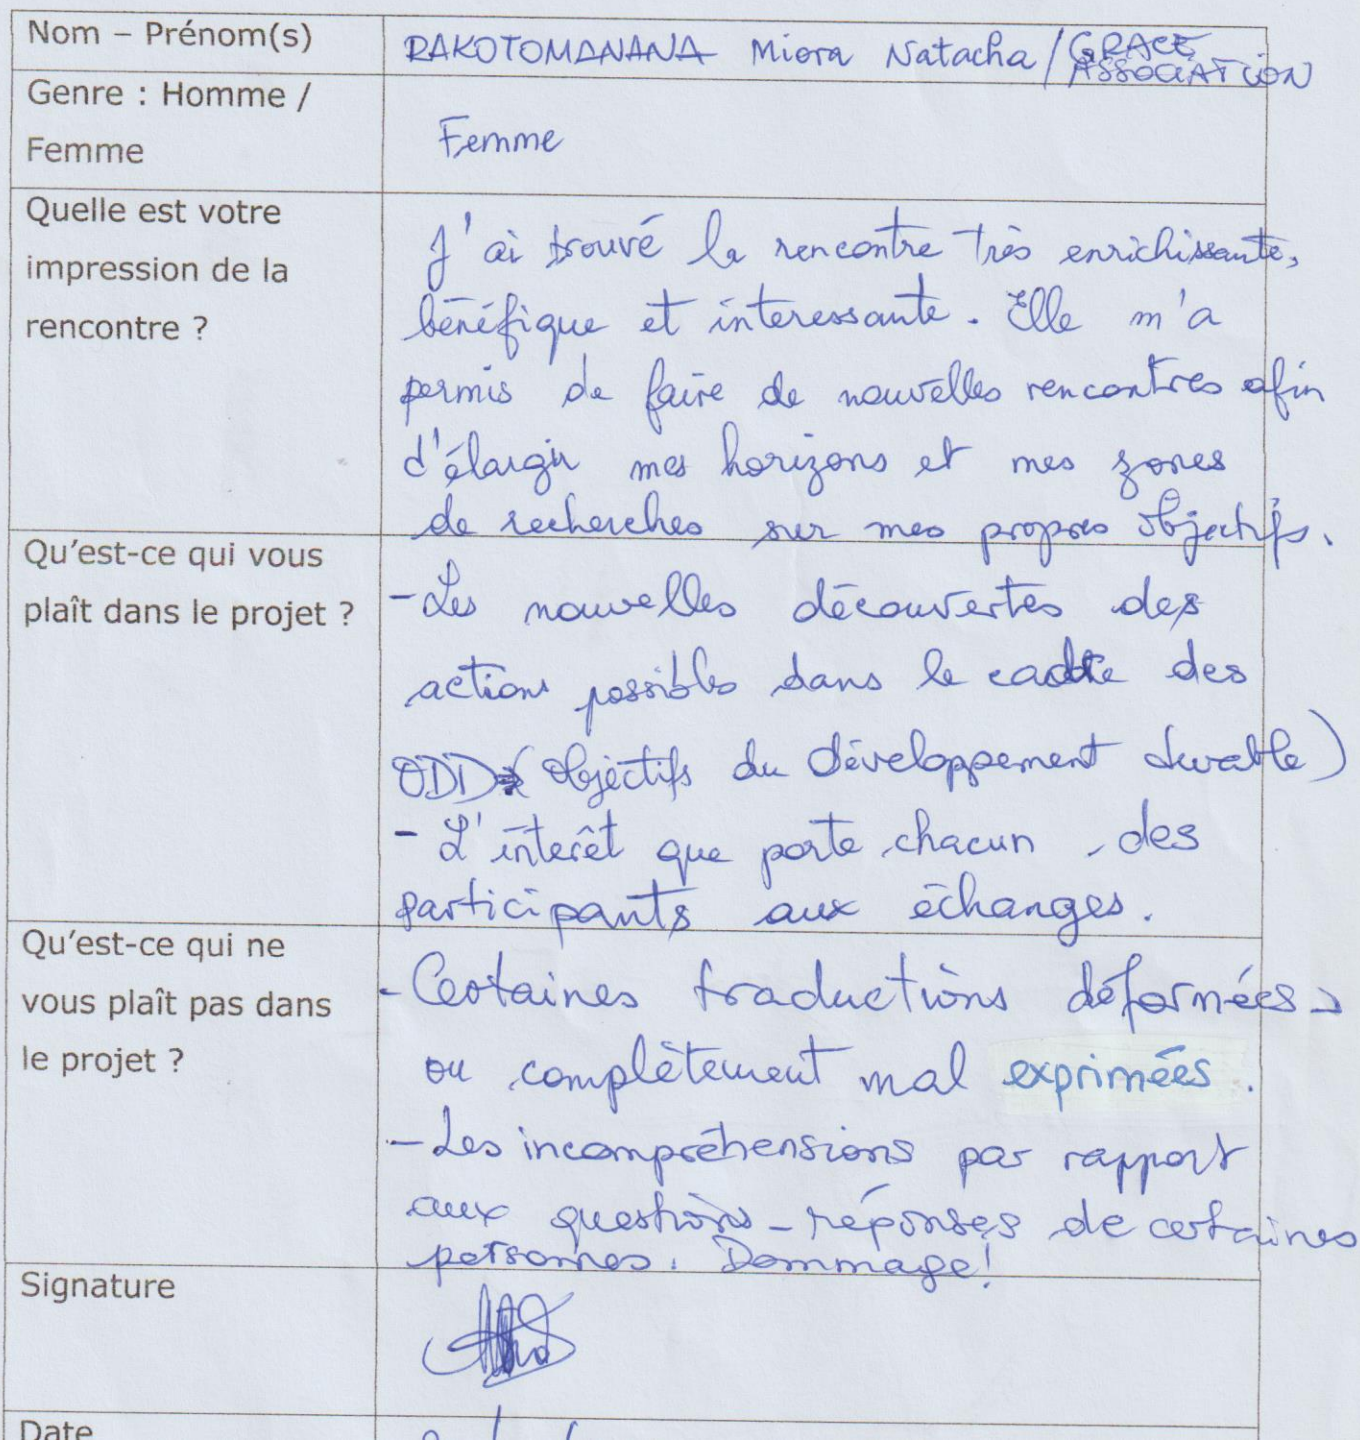 Nom – Prénom(s)
RAKOTOMANANA Miora Natacha / GRACE
ASSOCIATION
Genre : Homme /
Femme
Femme
Quelle est votre
impression de la
rencontre ?
J'ai trouvé la rencontre très enrichissante,
bénéfique et interessante. Elle m'a
permis de faire de nouvelles rencontres afin
d'élargir mes horizons et mes zones
de recherches sur mes propres objectifs.
Qu'est-ce qui vous
plaît dans le projet ?
- Les nouvelles découvertes des
actions possibles dans le cadre des
ODD (Objectifs du Développement durable)
- L'intérêt que porte chacun des
participants aux échanges.
Qu'est-ce qui ne
vous plaît pas dans
le projet ?
- Certaines traductions déformées
ou complètement mal exprimées.
- Les incompréhensions par rapport
aux questions - réponses de certaines
personnes. Dommage!
Signature
Date